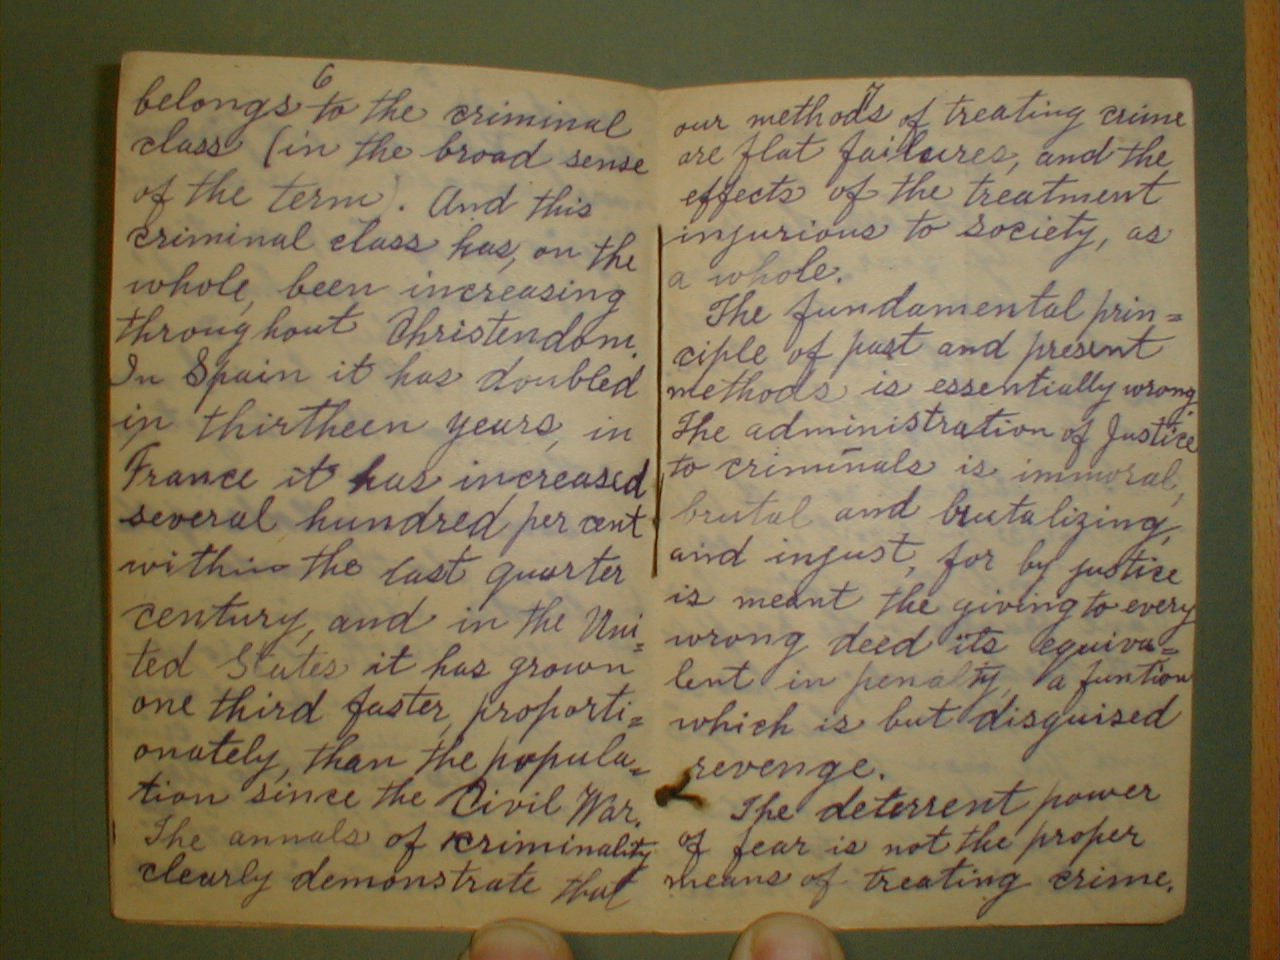 6
belongs to the criminal
class (in the broad sense
of the term). And this
criminal class has, on the
whole, been increasing
throughout Christendom.
In Spain it has doubled
in thirtheen years, in
France it has increased
several hundred per cent
within the last quarter
century, and in the Uni=
ted States it has grown
one third faster, proporti=
onately, than the popula=
tion since the Civil War.
The annals of criminality
clearly demonstrate that
7
our methods of treating crime
are flat failures, and the
effects of the treatment
injurious to society, as
a whole.
The fundamental prin=
ciple of past and present
methods is essentially wrong.
The administration of Justice
to criminals is immoral,
brutal and brutalizing,
and injust, for by justice
is meant the giving to every
wrong deed its equiva=
lent in penalty, a funtion
which is but disguised
revenge.
The deterrent power
of fear is not the proper
means of treating crime.